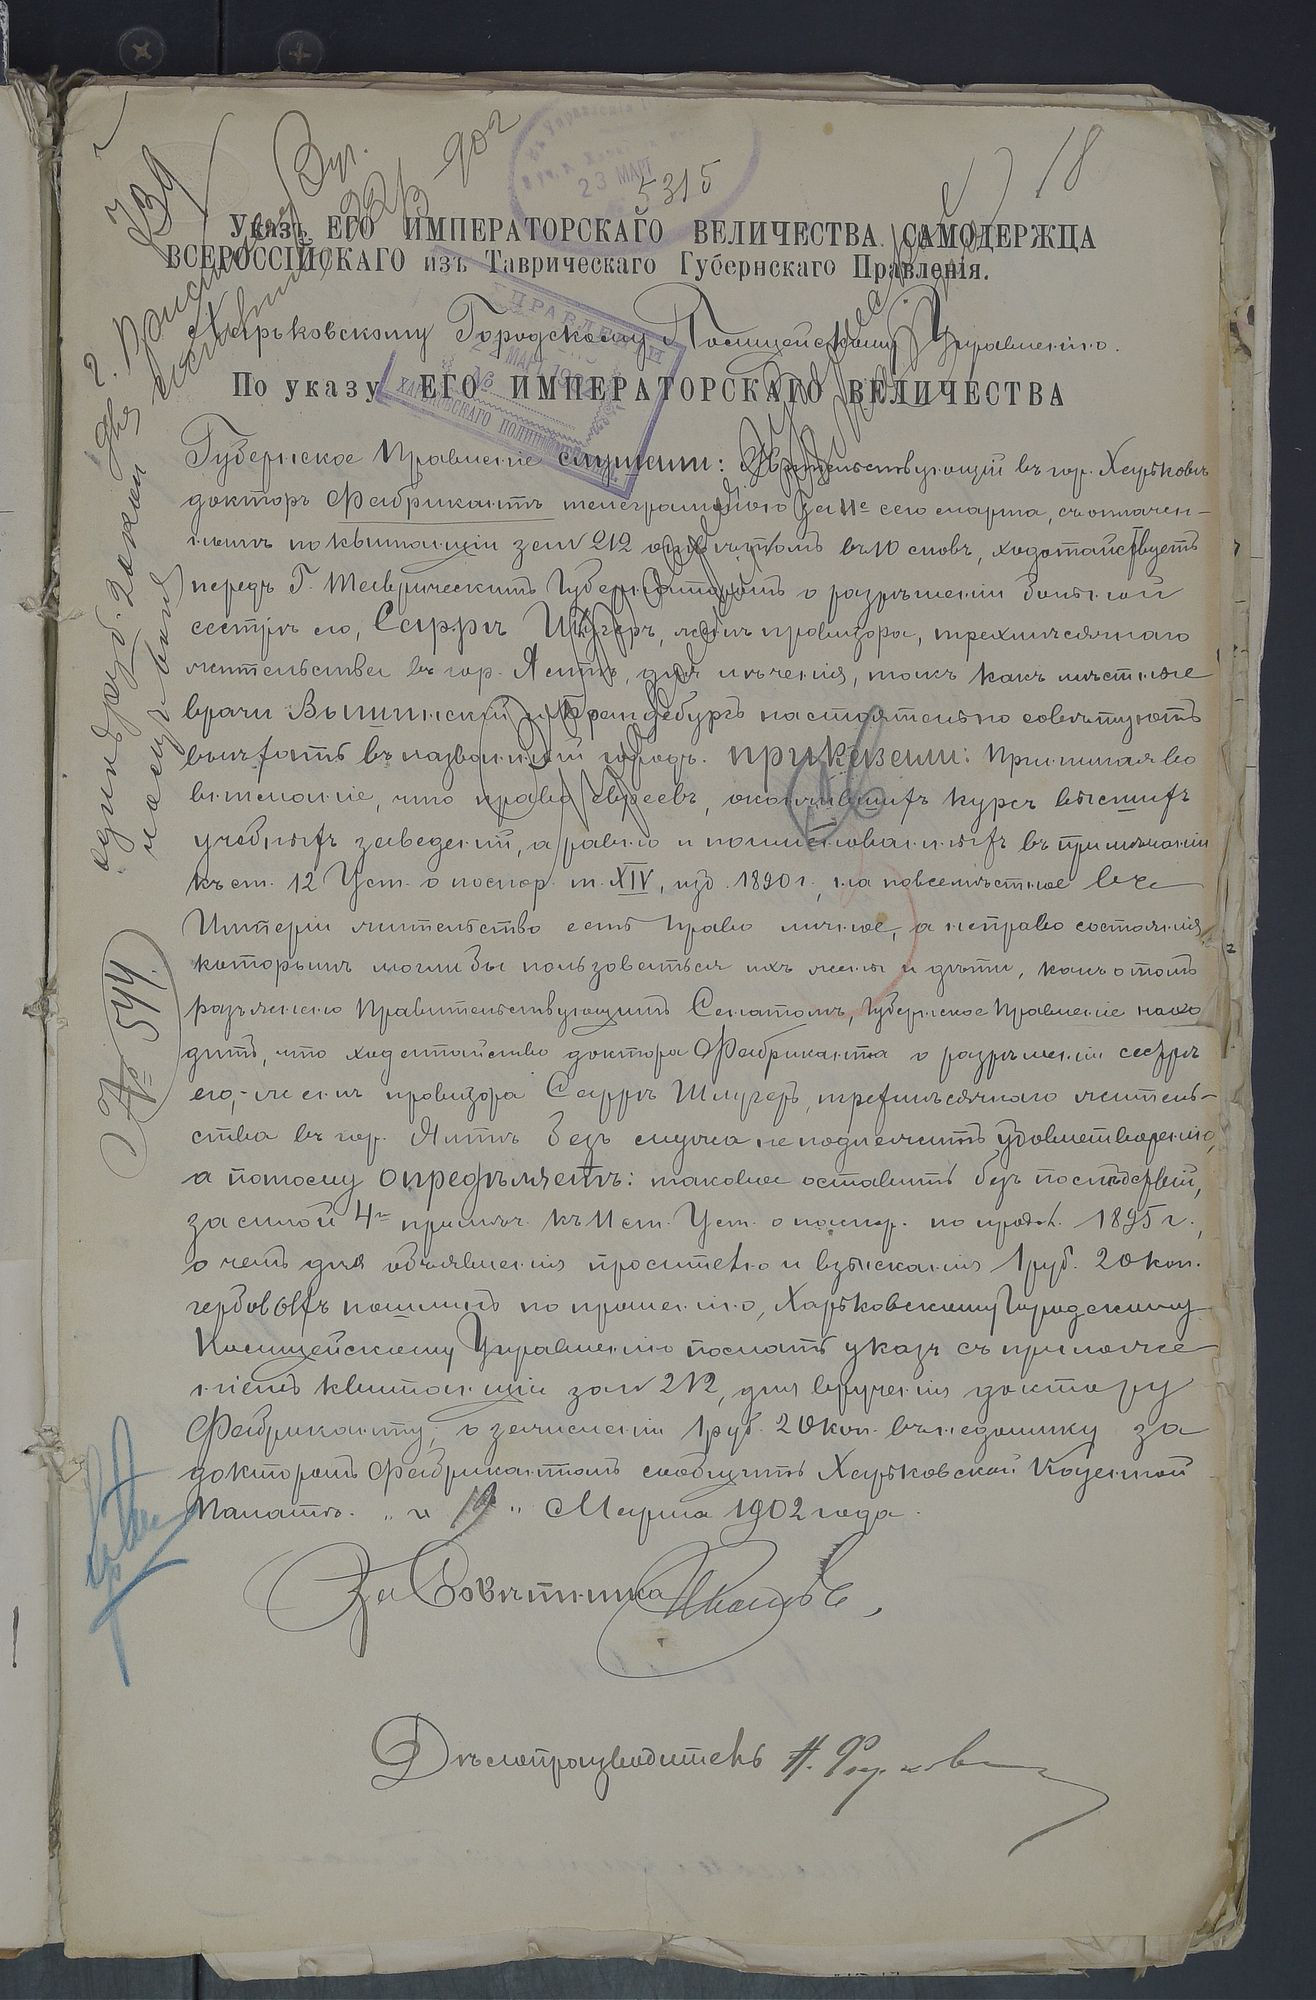 18
5315
23 МАРТ
739
Указъ ЕГО ИМПЕРАТОРСКАГО ВЕЛИЧЕСТВА САМОДЕРЖЦА
ВСЕРОССІЙСКАГО изъ Таврическаго Губернскаго Правленія.
Харьковскому Городскому Полицейскому Управленію.
По указу ЕГО ИМПЕРАТОРСКАГО ВЕЛИЧЕСТВА
Губернское Правленіе слушали: Жительствующій въ гор. Харьковѣ
докторъ Фабрикантъ телеграммою за 11е сего марта, съ оплачен-
нымъ по квитанціи за № 212 отвѣтомъ въ 10 словъ, ходатайствуетъ
передъ Г. Таврическимъ Губернаторомъ о разрѣшеніи больной
сестрѣ его, Саррѣ Шлугеръ, женѣ провизора, трехмѣсячнаго
жительства въ гор. Ялтѣ, для лѣченія, такъ какъ мѣстные
врачи Вышинскій и Брандебургъ настоятельно совѣтуютъ
выѣхать въ названный городъ. приказали: Принимая во
вниманіе, что право евреевъ, окончившихъ курсъ высшихъ
учебныхъ заведеній, а равно и поименованныхъ въ примѣчаніи
къ ст. 12 Уст. о паспор. т. XIV, изд. 1890 г., на повсемѣстное въ
Имперіи жительство есть право личное, а не право состоянія
которымъ могли бы пользоваться ихъ жены и дѣти, какъ о томъ
разъяснено Правительствующимъ Сенатомъ, Губернское Правленіе нахо
дитъ, что ходатайство доктора Фабриканта о разрѣшеніи сестрѣ
его,- женѣ провизора Саррѣ Шлугеръ, трехмѣсячнаго житель-
ства въ гор. Ялтѣ безъ случа не подлежитъ удовлетворенію,
а потому опредѣляетъ: таковое оставить безъ послѣдствій,
за силой 4п примѣч. къ 11 ст. Уст. о паспор. по прод. 1895 г.,
о чемъ для объявленія просителю и взысканія 1 руб. 20 коп.
гербовыхъ пошлинъ по прошенію, Харьковскому Городскому
Полицейскому Управленію послать указъ съ приложе
ніемъ квитанціи за № 212, для врученія доктору
Фабриканту, о зачисленіи 1 руб. 20 коп. въ недоимку за
докторомъ Фабрикантомъ сообщить Харьковской Казенной
Палатѣ. „ 19 " Марта 1902 года.
За Совѣтника
Дѣлопроизводитель
№ 544.